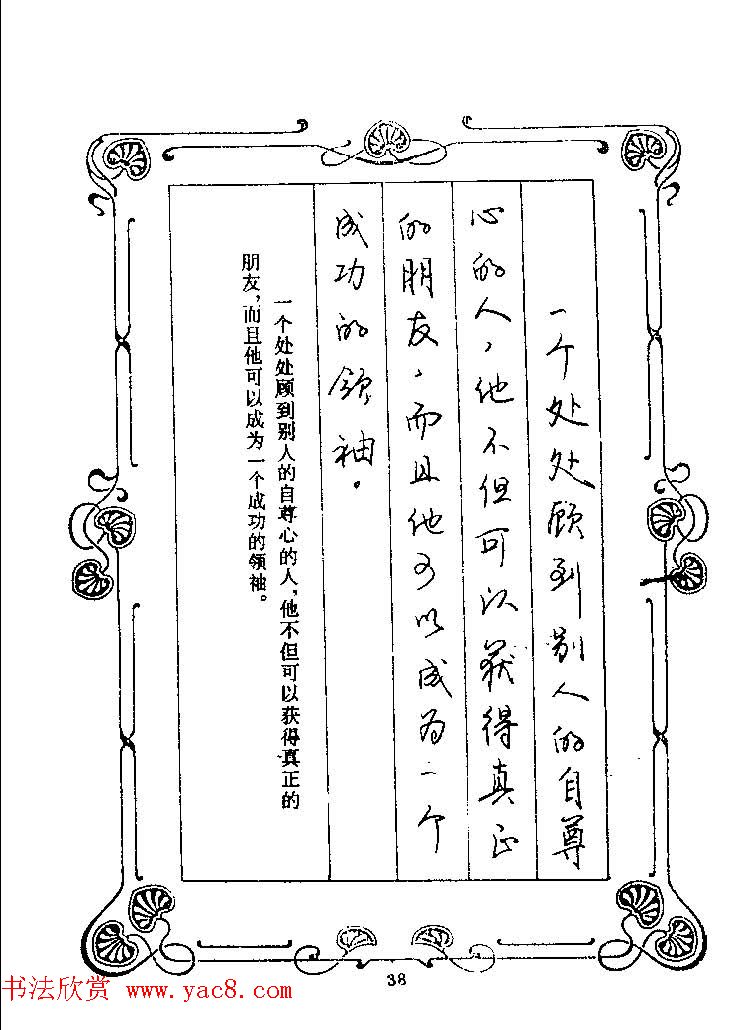 一个处处顾到别人的自尊
心的人，他不但可以获得真正
的朋友，而且他可以成为一个
成功的领袖。
一个处处顾到别人的自尊心的人，他不但可以获得真正的
朋友，而且他可以成为一个成功的领袖。
38
书法欣赏 www.yac8.com